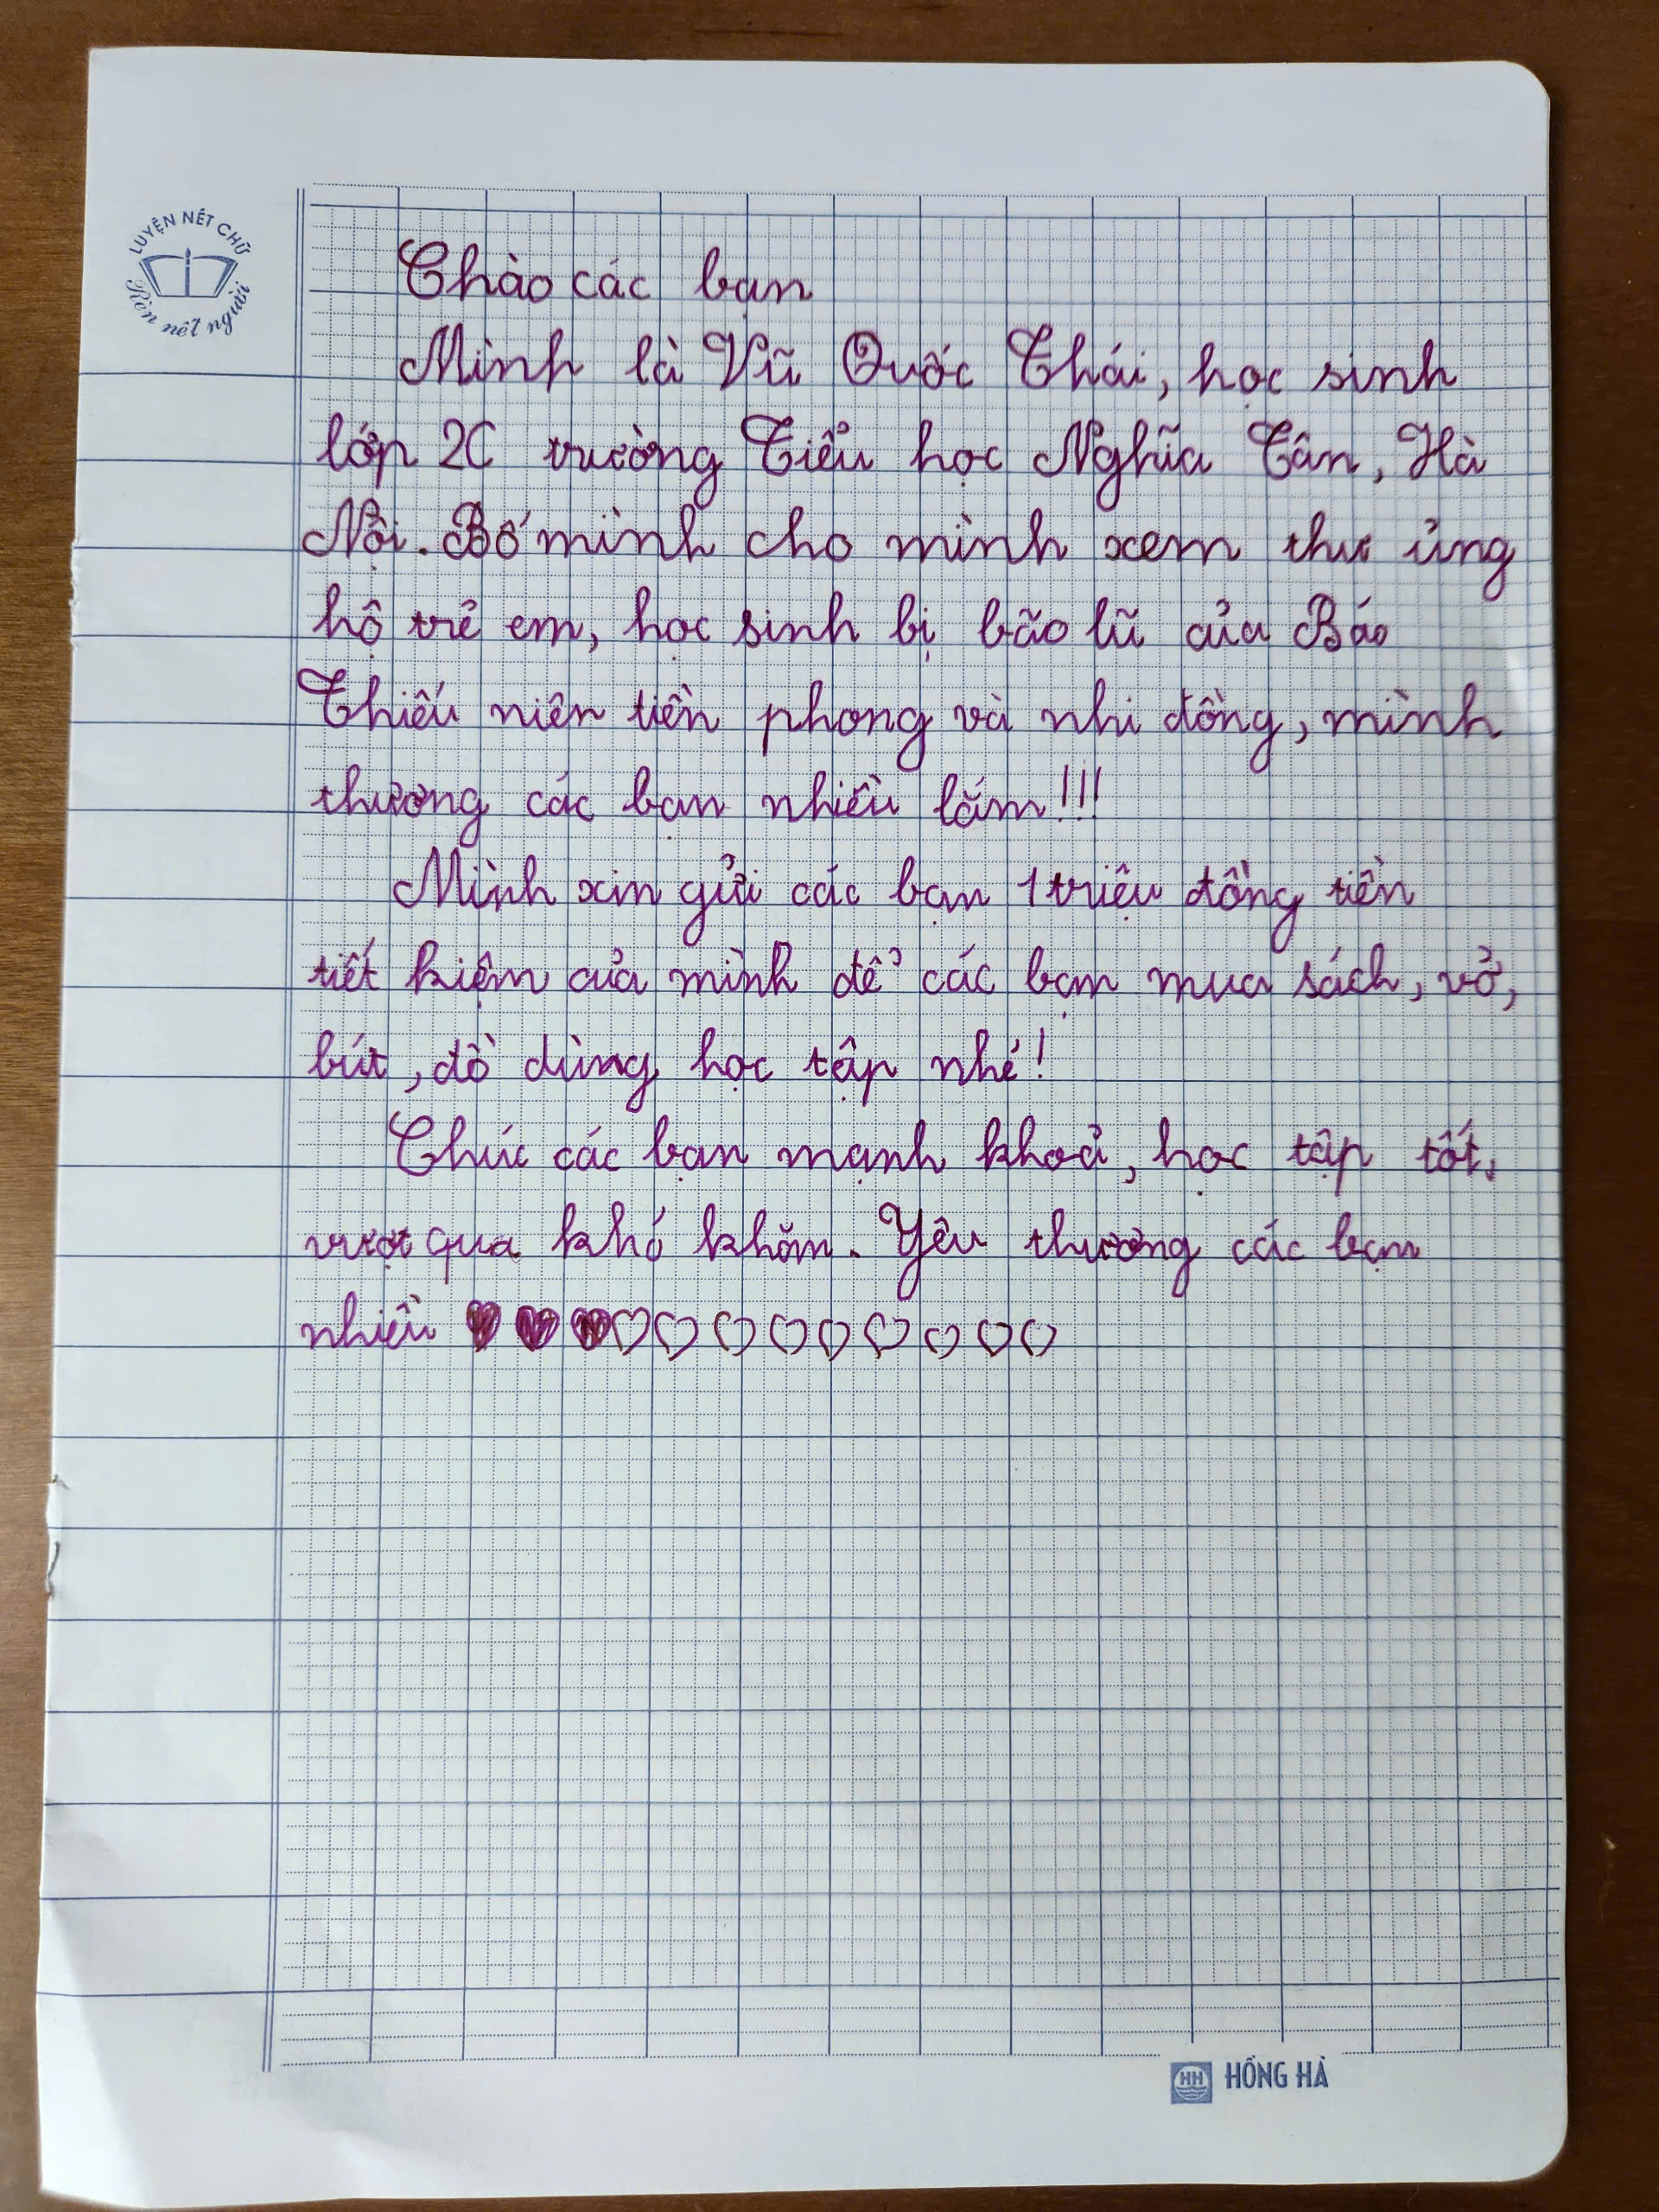 LUYỆN NÉT CHỮ
Rèn nết người
Chào các bạn
Mình là Vũ Quốc Thái, học sinh
lớp 2C trường Tiểu học Nghĩa Tân, Hà
Nội. Bố mình cho mình xem thư ủng
hộ trẻ em, học sinh bị bão lũ của Báo
Thiếu niên tiền phong và nhi đồng, mình
thương các bạn nhiều lắm!!!
Mình xin gửi các bạn 1 triệu đồng tiền
tiết kiệm của mình để các bạn mua sách, vở,
bút, đồ dùng học tập nhé!
Chúc các bạn mạnh khoẻ, học tập tốt,
vượt qua khó khăn. Yêu thương các bạn
nhiều
HH HỒNG HÀ